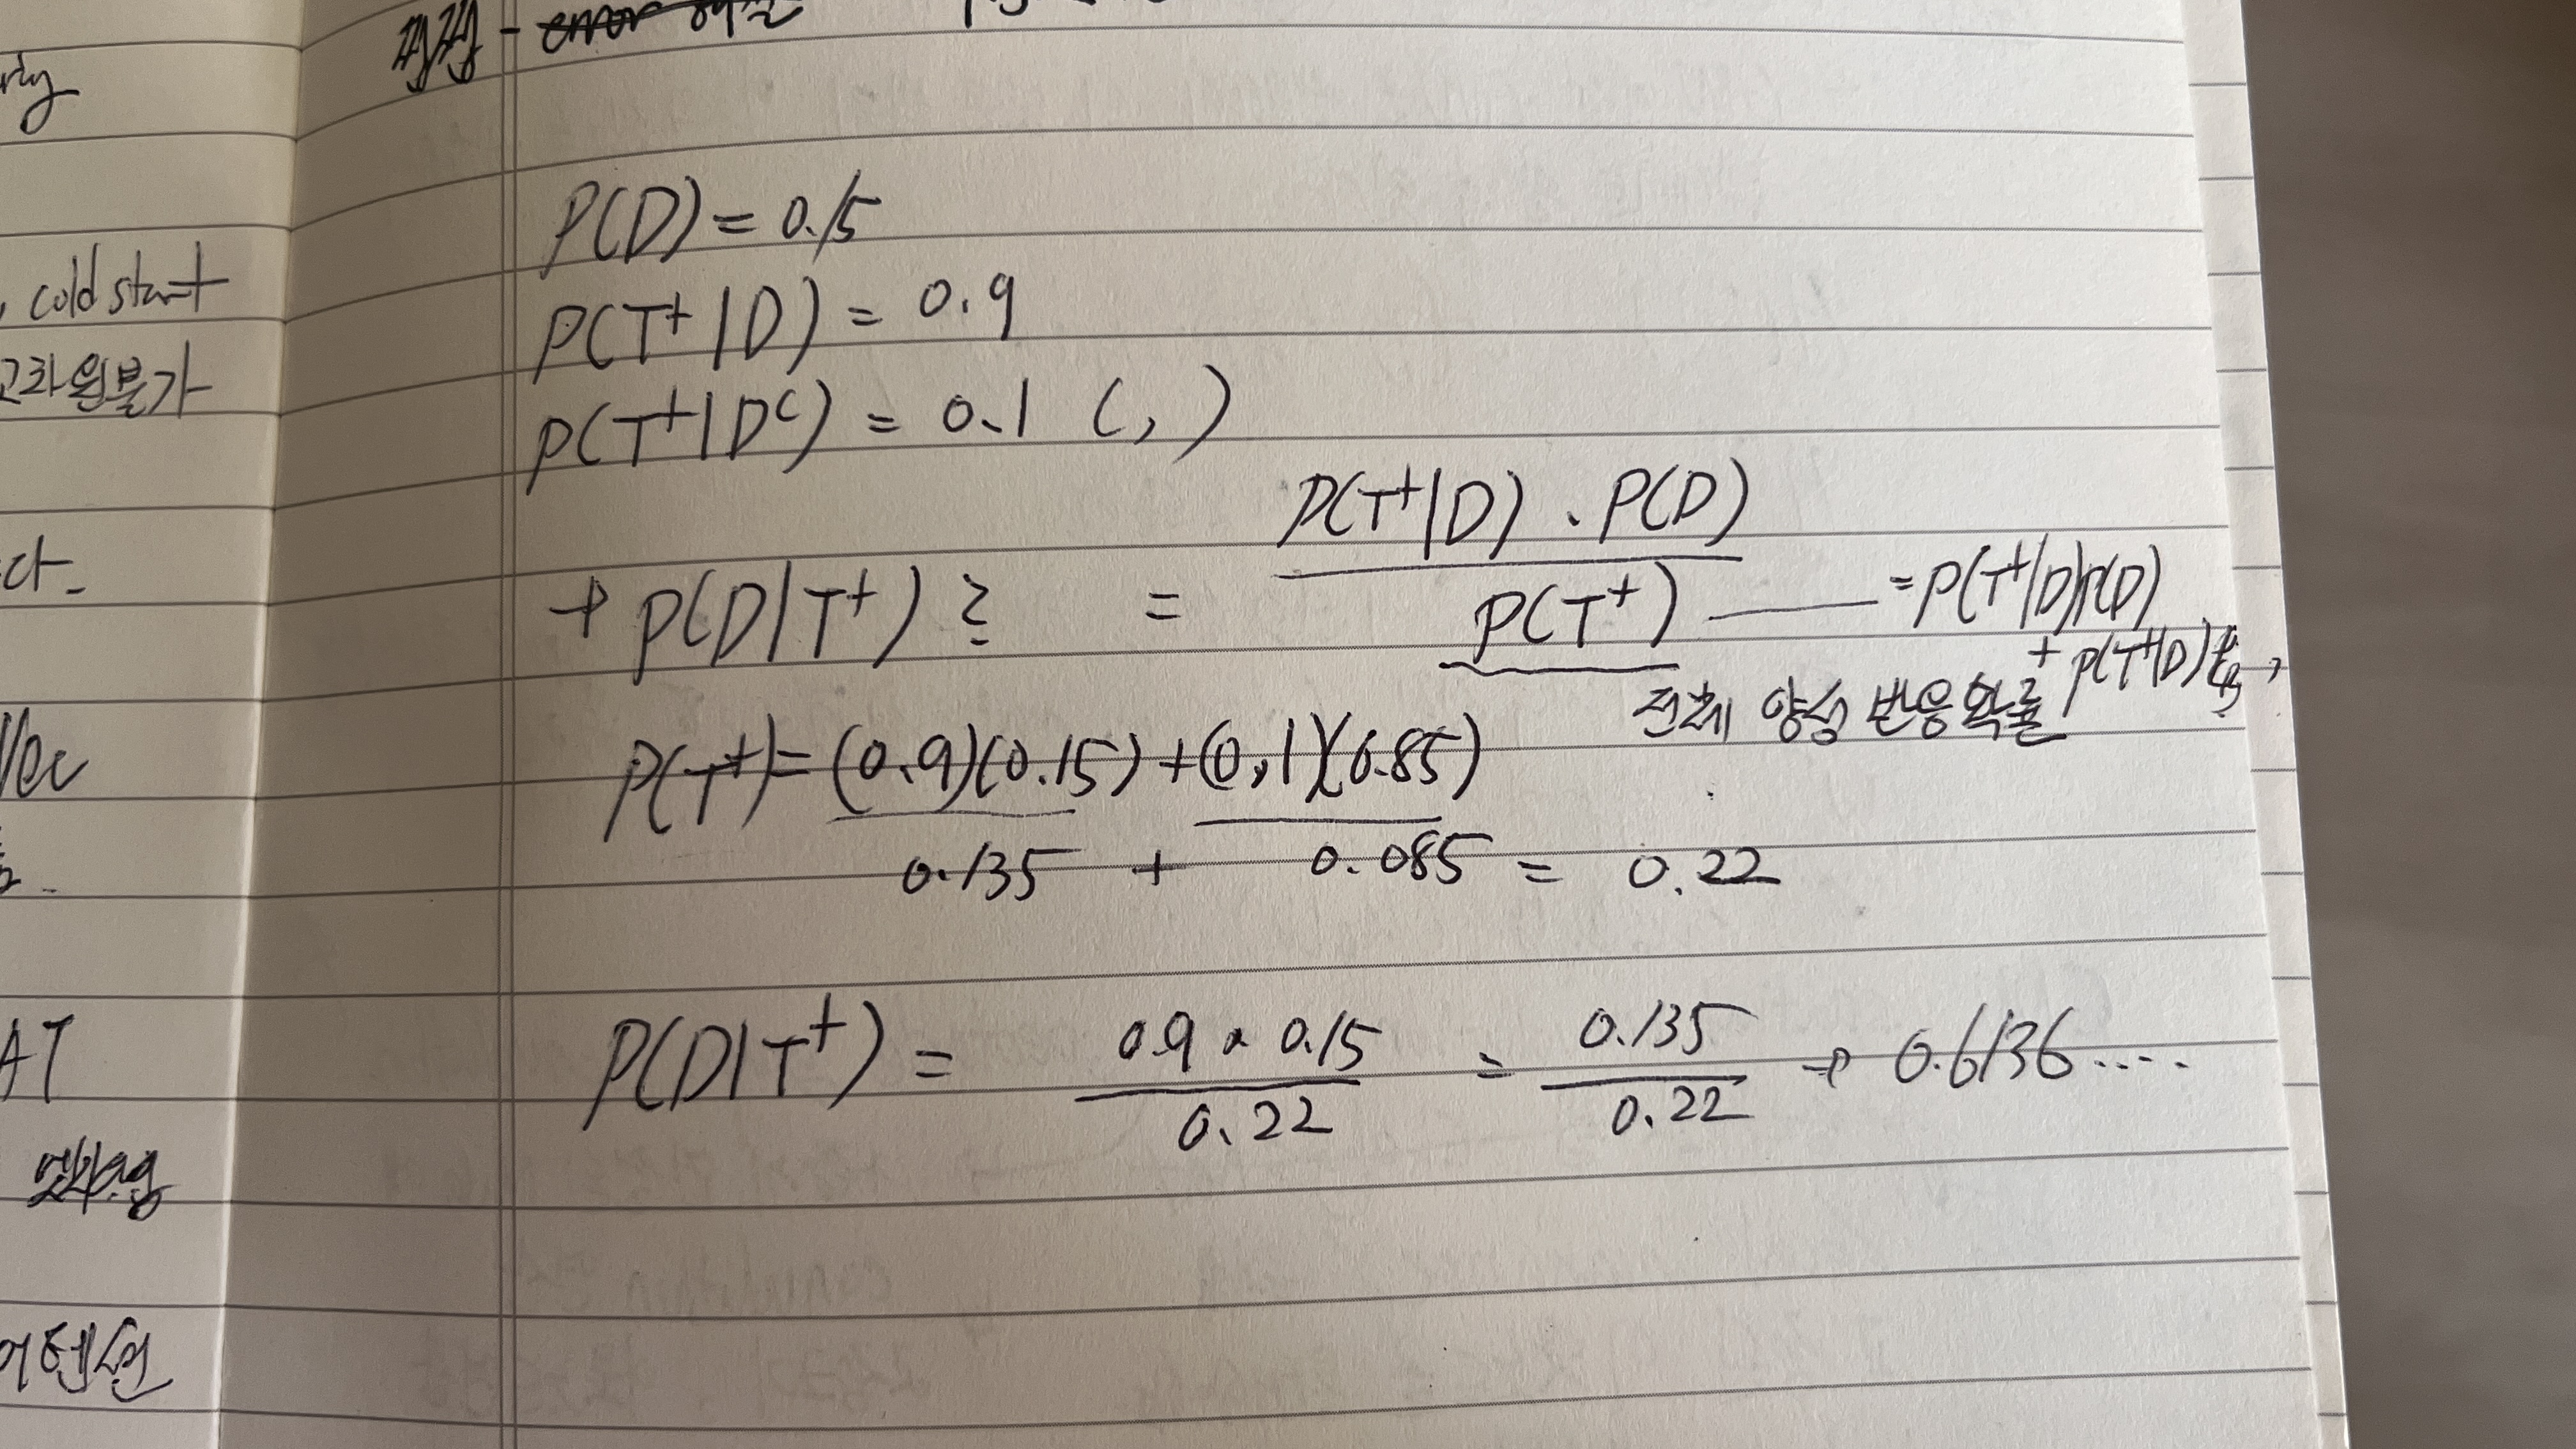 rly
, cold start
고차원 불가
다.
Vec
AT
어텐션
P(D) = 0.15
P(T⁺|D) = 0.9
P(T⁺|Dᶜ) = 0.1 ( , )
→ P(D|T⁺) ? = P(T⁺|D) · P(D) / P(T⁺) — = P(T⁺|D)P(D)
+ P(T⁺|D)
전체 양성 반응 확률
P(T⁺) = (0.9)(0.15) + (0.1)(0.85)
0.135 + 0.085 = 0.22
P(D|T⁺) = 0.9 × 0.15 / 0.22 = 0.135 / 0.22 → 0.6136....